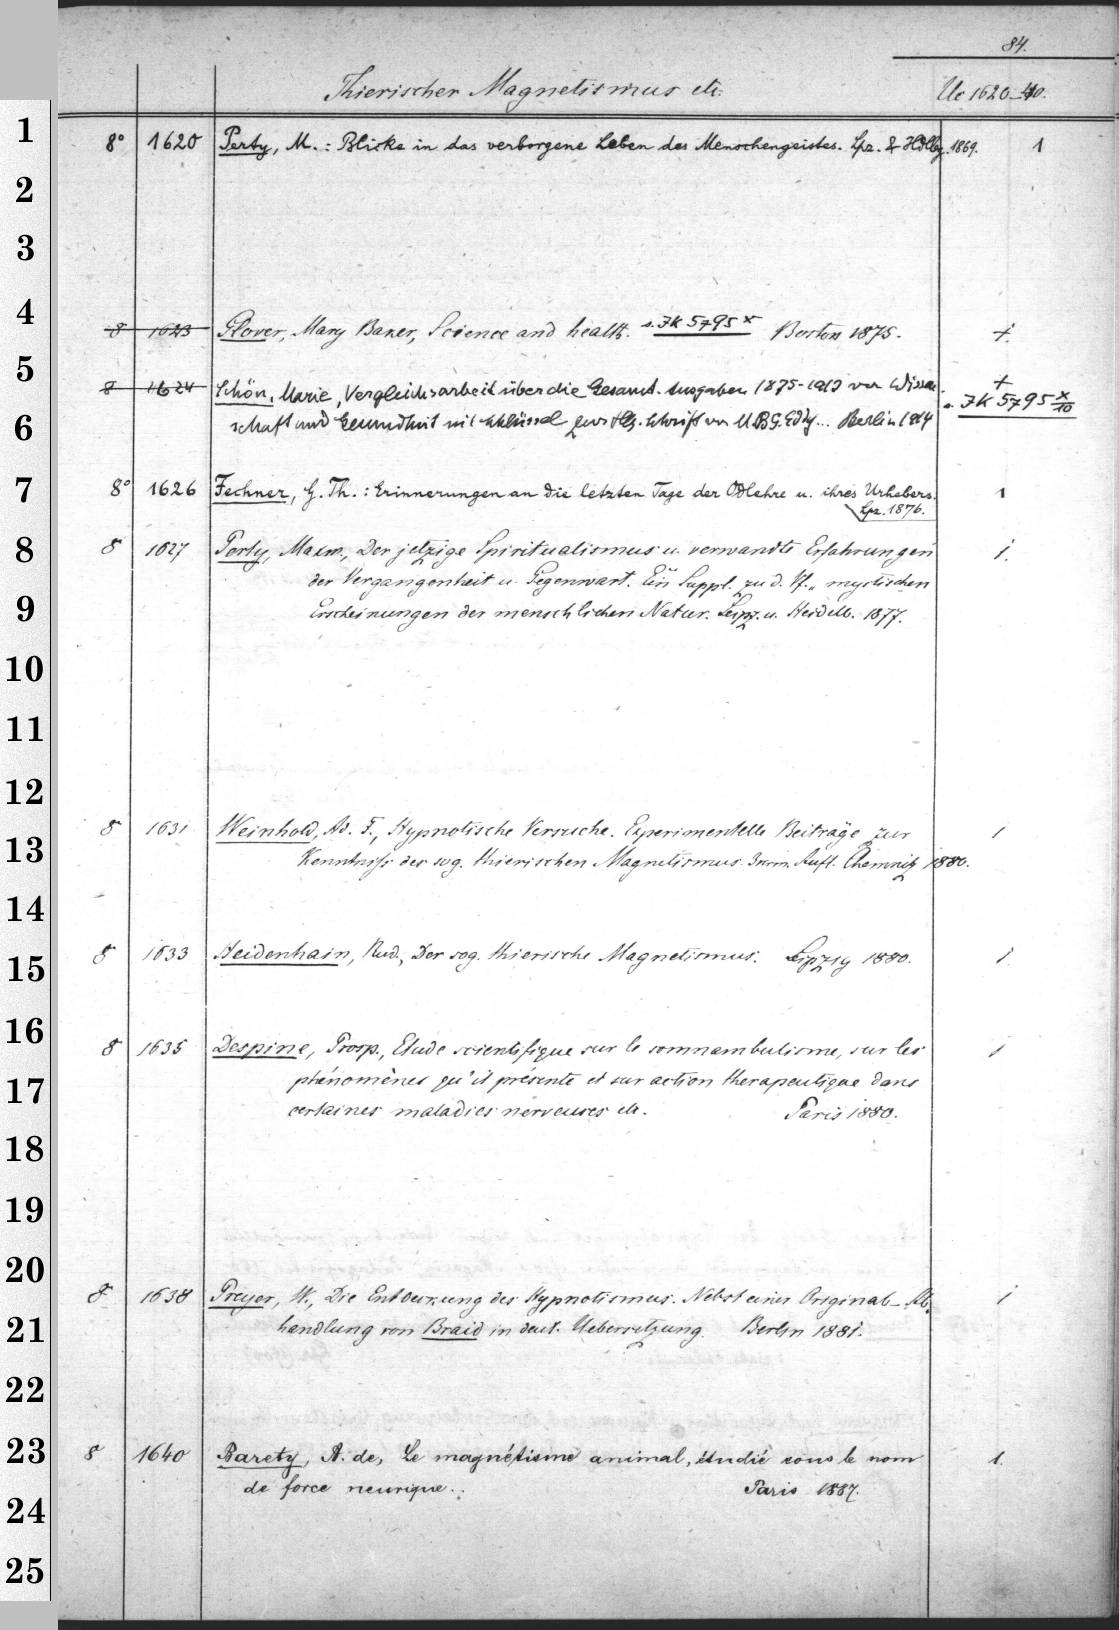 84.
Thierischer Magnetismus etc. Uc 1620-40.
1
8° 1620 Perty, M.: Blicke in das verborgene Leben des Menschengeistes. Lpz. & Hdlbg. 1869. 1
2
3
4
8 1623 Glover, Mary Baker, Science and health. s. Jk 5795 x Boston 1875. +
5
8 1624 Schön, Marie, Vergleichsarbeit über die Gesamt-Ausgaben 1875-1913 von Wissen- +
s. Jk 5795 x/10
6
schaft und Gesundheit mit Schlüssel zur Hlg. Schrift von M.B.G. Eddy... Berlin 1914
7
8° 1626 Fechner, G. Th.: Erinnerungen an die letzten Tage der Odlehre u. ihres Urhebers. 1
Lpz. 1876.
8
8 1627 Perty, Maxm., Der jetzige Spiritualismus u. verwandte Erfahrungen 1.
der Vergangenheit u. Gegenwart. Ein Suppl. zu d. Vf. „ mystischen
9
Erscheinungen der menschlichen Natur. Leipz. u. Heidelb. 1877.
10
11
12
13
8 1631 Weinhold, Ad. F., Hypnotische Versuche. Experimentelle Beiträge zur 1
Kenntniss des sog. thierischen Magnetismus. 3 Aufl. Chemnitz 1880.
14
15
8 1633 Heidenhain, Rud., Der sog. thierische Magnetismus. Leipzig 1880. 1.
16
8 1635 Despine, Prosp., Etude scientifique sur le somnambulisme, sur les 1
17
phénomènes qu'il présente et sur action therapeutique dans
certaines maladies nerveuses etc. Paris 1880.
18
19
20
8 1638 Preyer, W., Die Entdeckung des Hypnotismus. Nebst einer Original-Ab- 1
21
handlung von Braid in deut. Uebersetzung. Berlin 1881.
22
23
8 1640 Barety, A. de, Le magnétisme animal, étudié sous le nom 1.
de force neurique.. Paris 1887.
24
25